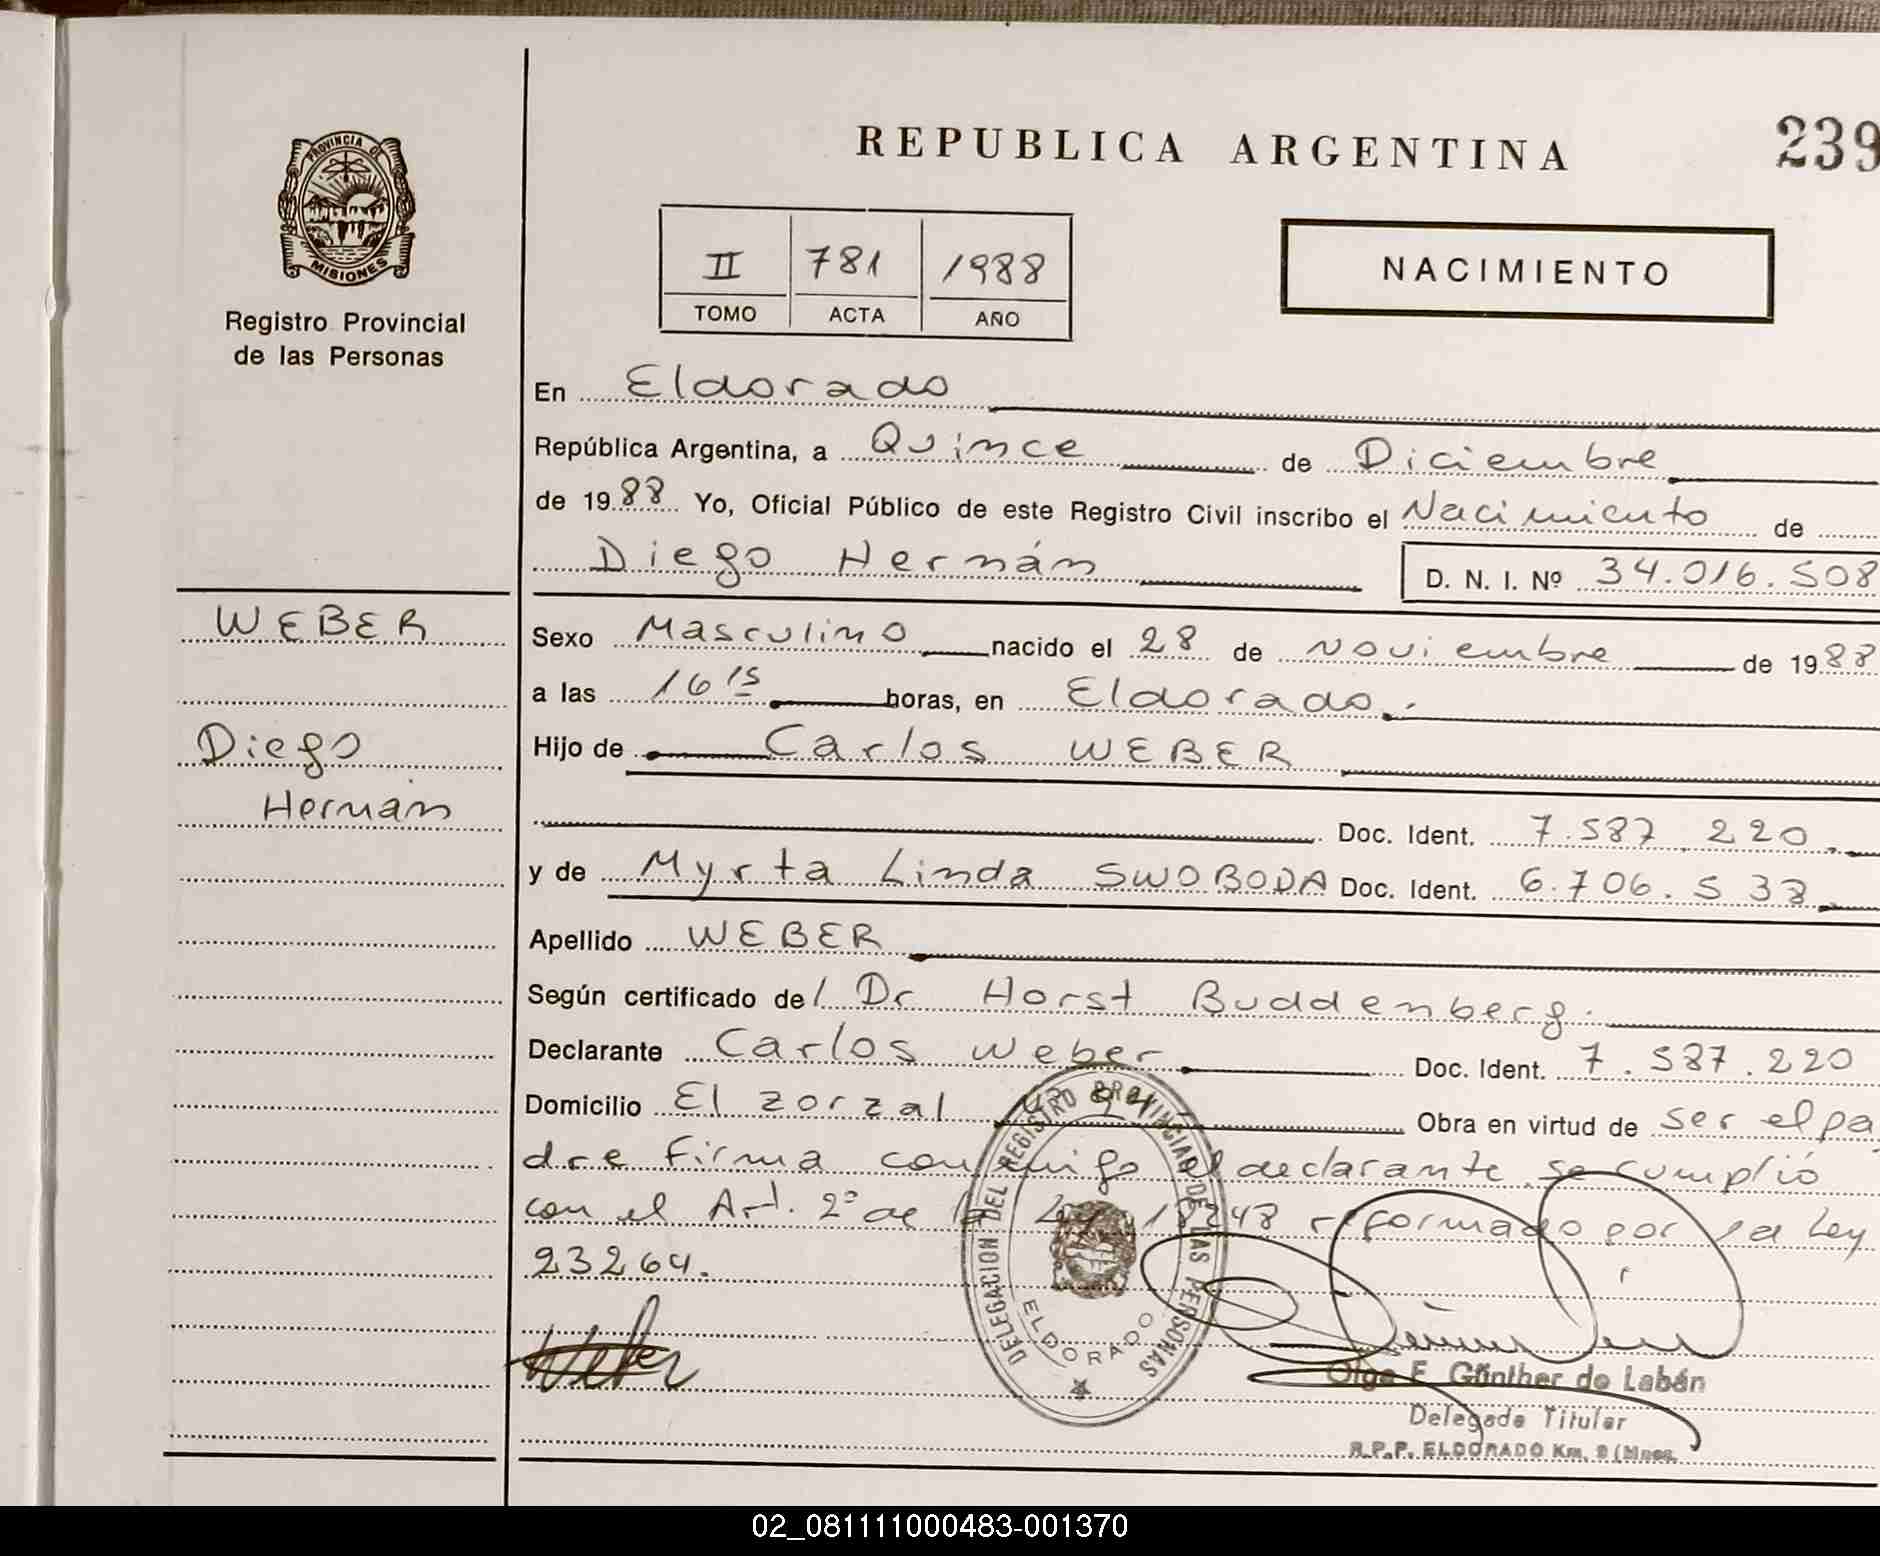 REPUBLICA ARGENTINA
239
PROVINCIA DE
MISIONES
Registro Provincial
de las Personas
II 781 1988
TOMO ACTA AÑO
NACIMIENTO
En Eldorado
República Argentina, a Quince de Diciembre
de 1988 Yo, Oficial Público de este Registro Civil inscribo el Nacimiento de
Diego Hernán D. N. I. Nº 34.016.508
WEBER
Diego
Hernán
Sexo Masculino nacido el 28 de Noviembre de 1988
a las 16 15 horas, en Eldorado.
Hijo de Carlos WEBER
Doc. Ident. 7.587.220.
y de Myrta Linda SWOBODA Doc. Ident. 6.706.538
Apellido WEBER
Según certificado de/ Dr Horst Buddenberg.
Declarante Carlos Weber Doc. Ident. 7.587.220
Domicilio El zorzal Obra en virtud de ser el pa
dre Firma conmigo el declarante se cumplió
con el Art. 2º de la Ley 18248 reformado por la Ley
23264.
DELEGACION DEL REGISTRO PROVINCIAL DE LAS PERSONAS
ELDORADO
Weber
Olga E. Günther de Labán
Delegada Titular
R.P.P. ELDORADO Km. 9 (Mnes.
02_081111000483-001370